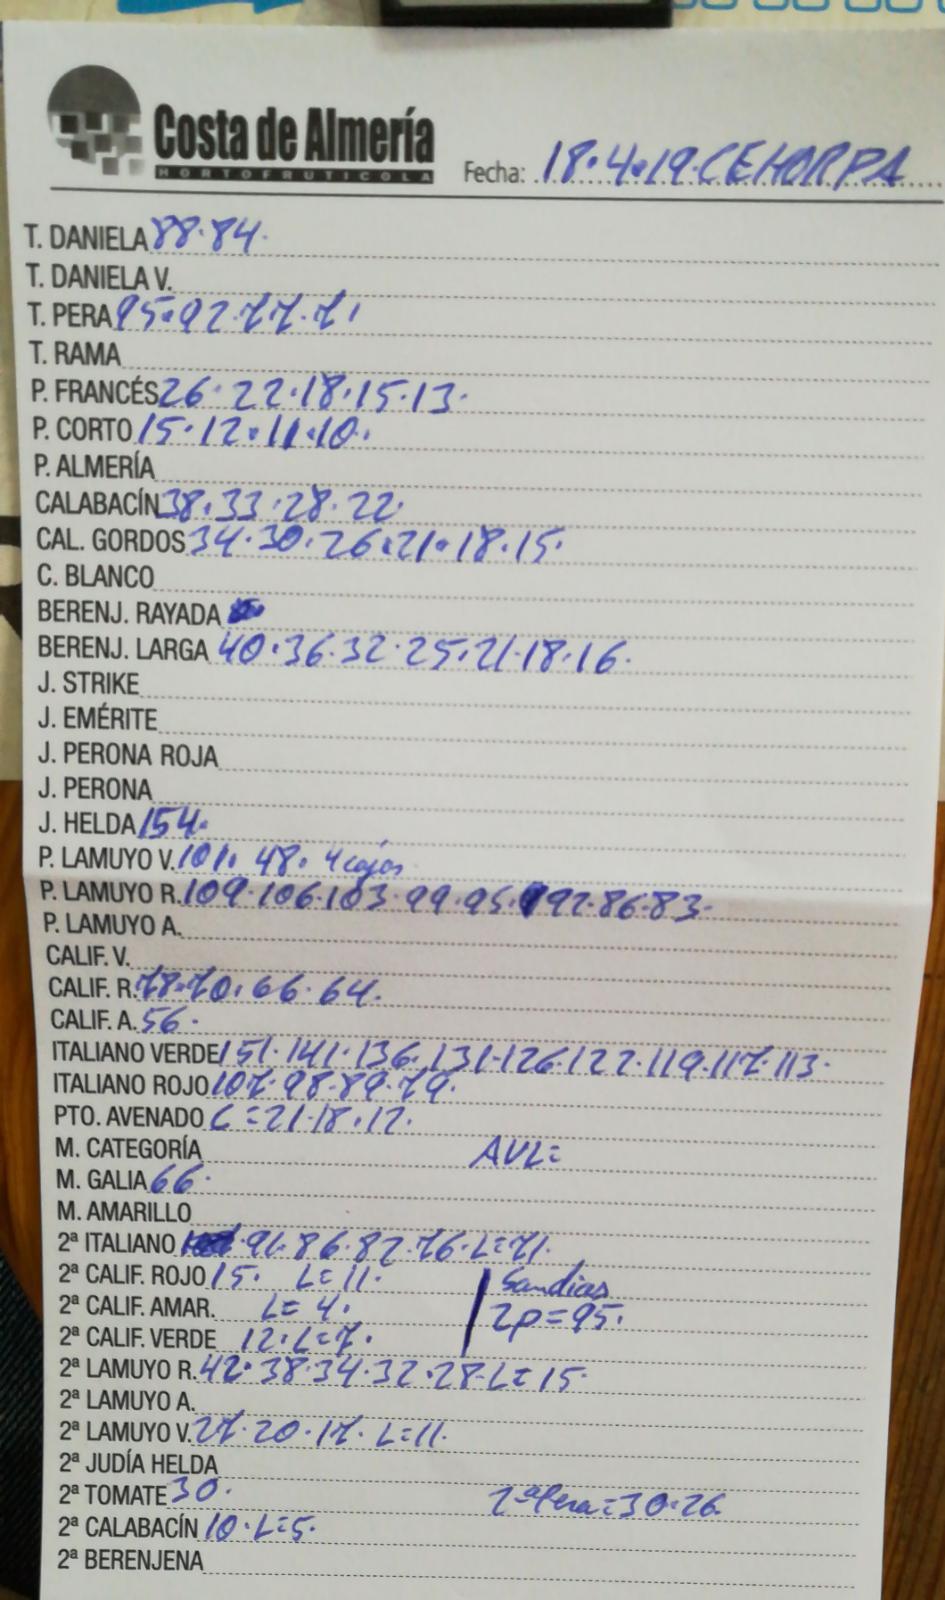 Costa de Almería
HORTOFRUTICOLA
Fecha: 18.4.19.CEHORPA
T. DANIELA 88.84.
T. DANIELA V.
T. PERA 95.92.77.71
T. RAMA
P. FRANCÉS 26.22.18.15.13.
P. CORTO 15.12.11.10.
P. ALMERÍA
CALABACÍN 38.33.28.22.
CAL. GORDOS 34.30.26.21.18.15.
C. BLANCO
BERENJ. RAYADA
BERENJ. LARGA 40.36.32.25.21.18.16.
J. STRIKE
J. EMÉRITE
J. PERONA ROJA
J. PERONA
J. HELDA 154.
P. LAMUYO V. 101. 48. 4 cajas
P. LAMUYO R. 109.106.103.99.95.92.86.83.
P. LAMUYO A.
CALIF. V.
CALIF. R. 78.70.66.64.
CALIF. A. 56.
ITALIANO VERDE 151.141.136.131.126.122.119.117.113.
ITALIANO ROJO 107.98.89.79.
PTO. AVENADO C=21.18.12.
M. CATEGORÍA AVL=
M. GALIA 66.
M. AMARILLO
2ª ITALIANO 91.86.82.76.L=71.
2ª CALIF. ROJO 15. L=11. Sandias
2ª CALIF. AMAR. L=4. 2p=95.
2ª CALIF. VERDE 12.L=7.
2ª LAMUYO R. 42.38.34.32.28.L=15.
2ª LAMUYO A.
2ª LAMUYO V. 27.20.17. L=11.
2ª JUDÍA HELDA
2ª TOMATE 30. 2ªPera=30.26.
2ª CALABACÍN 10.L=5.
2ª BERENJENA